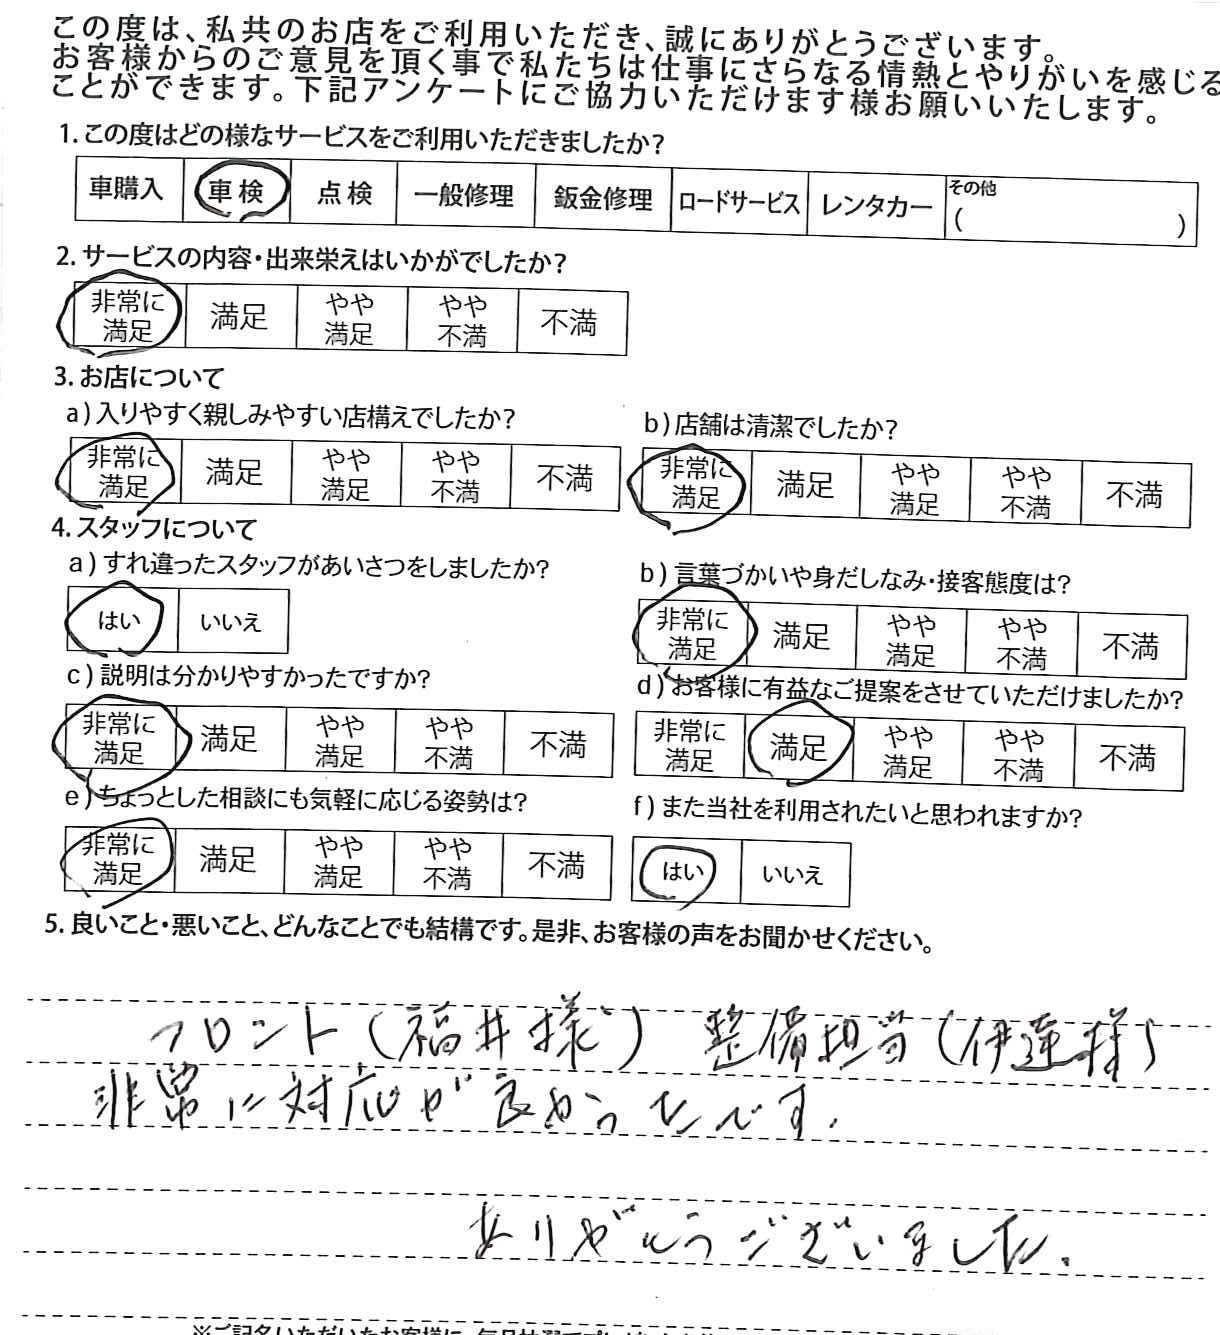 この度は、私共のお店をご利用いただき、誠にありがとうございます。
お客様からのご意見を頂く事で私たちは仕事にさらなる情熱とやりがいを感じる
ことができます。下記アンケートにご協力いただけます様お願いいたします。
1. この度はどの様なサービスをご利用いただきましたか?
車購入 車検 点検 一般修理 鈑金修理 ロードサービス レンタカー その他
( )
2. サービスの内容・出来栄えはいかがでしたか?
非常に満足 満足 やや満足 やや不満 不満
3. お店について
a) 入りやすく親しみやすい店構えでしたか?
非常に満足 満足 やや満足 やや不満 不満
b) 店舗は清潔でしたか?
非常に満足 満足 やや満足 やや不満 不満
4. スタッフについて
a) すれ違ったスタッフがあいさつをしましたか?
はい いいえ
b) 言葉づかいや身だしなみ・接客態度は?
非常に満足 満足 やや満足 やや不満 不満
c) 説明は分かりやすかったですか?
非常に満足 満足 やや満足 やや不満 不満
d) お客様に有益なご提案をさせていただけましたか?
非常に満足 満足 やや満足 やや不満 不満
e) ちょっとした相談にも気軽に応じる姿勢は?
非常に満足 満足 やや満足 やや不満 不満
f) また当社を利用されたいと思われますか?
はい いいえ
5. 良いこと・悪いこと、どんなことでも結構です。是非、お客様の声をお聞かせください。
フロント(福井様) 整備担当(伊達様)
非常に対応が良かったです.
ありがとうございました.
※ご記名いただいたお客様に、毎月抽選で